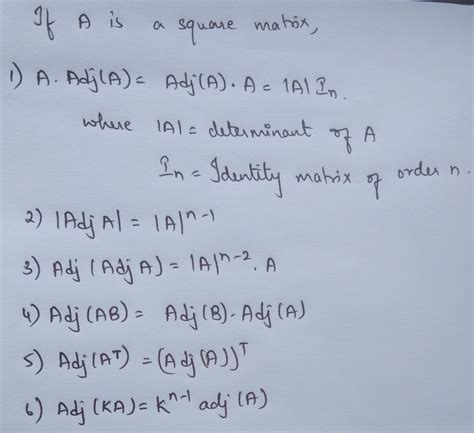 If A is a square matrix,
1) A. Adj(A) = Adj(A) . A = |A| In.
where |A| = determinant of A
In = Identity matrix of order n.
2) |Adj A| = |A|^n-1
3) Adj (Adj A) = |A|^n-2 . A
4) Adj (AB) = Adj (B) . Adj (A)
5) Adj (A^T) = (Adj (A))^T
6) Adj (KA) = K^n-1 adj (A)